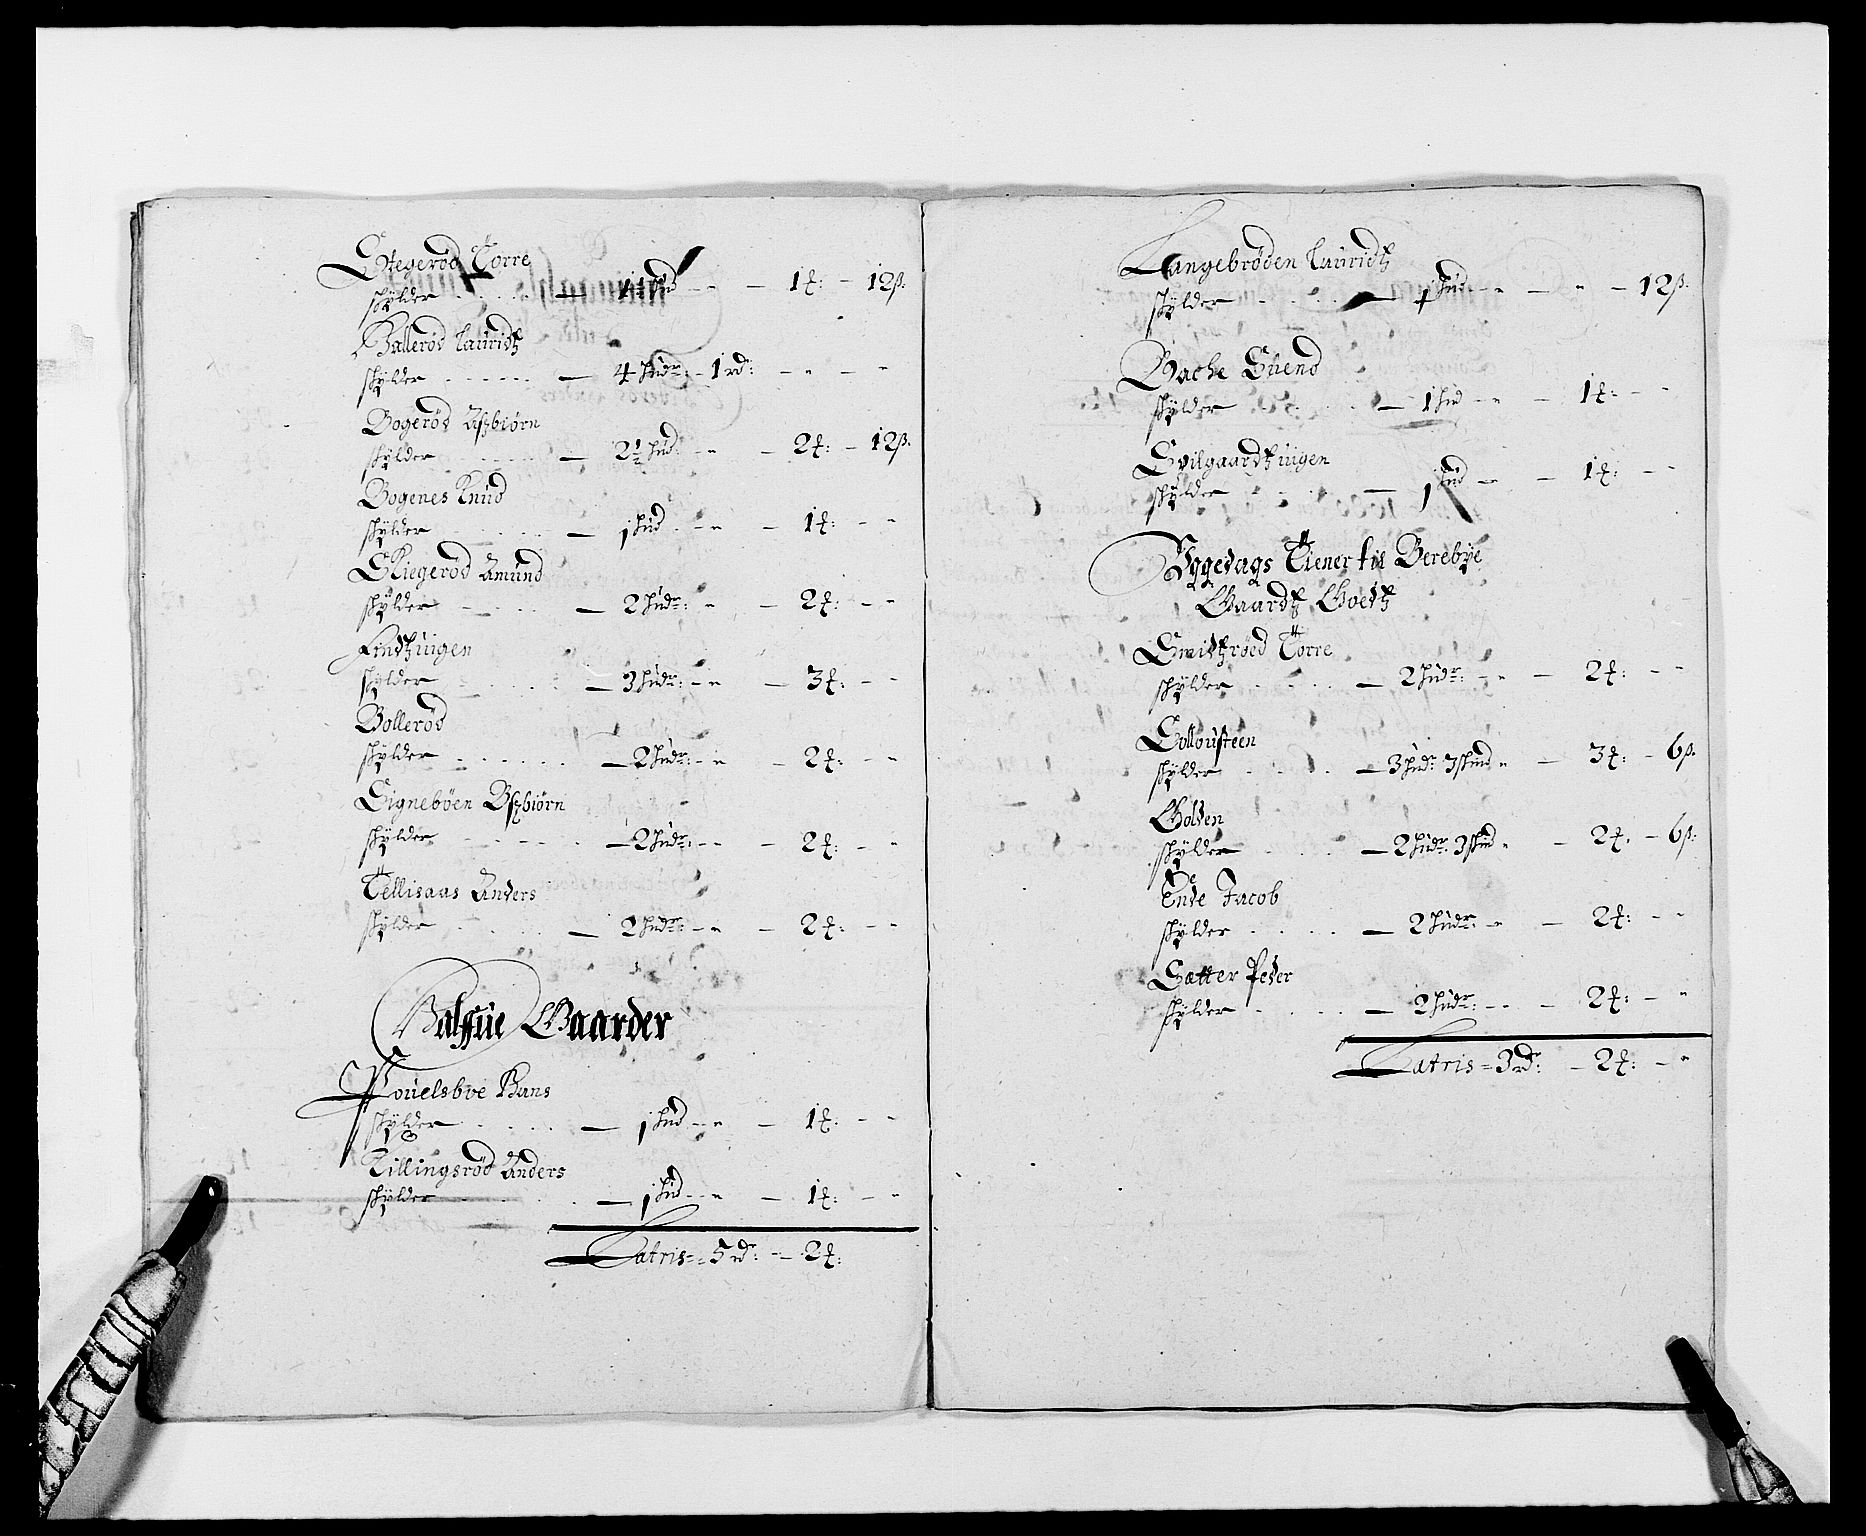 Stegerød Torre
skylder - - 1½ hud - - 1 ƶ: - 12 ß:
Hallerød Lauridtz
skylder - - 4 hudr: - 1 rd: - -
Bogerød Aszbiørn
skylder - - 2½ hud: - - 2 ƶ: - 12 ß.
Bogenes Knud
skylder - - 1 hud - - 1 ƶ: - -
Skiegerød Amund
skylder - - 2 hudr: - - 2 ƶ: - -
Lindhuigen
skylder - - 3 hudr: - - 3 ƶ: - -
Bollerød
skylder - - 2 hudr: - - 2 ƶ: - -
Signebøen Aszbiørn
skylder - - 2 hudr: - - 2 ƶ: - -
Tellisaas Anders
skylder - - 2 hudr: - - 2 ƶ: - -
Halffue Gaarder
Pouelsboe Hans
skylder - - 1 hud - - 1 ƶ: - -
Killingsrød Anders
skylder - - 1 hud - - 1 ƶ: - -
Latris - 5 rdr: - 2 ƶ:
Langebrøden Lauridtz
skylder - - 1 hud: - - 12 ß.
Bache Suend
skylder - - 1 hud - - 1 ƶ: - -
huigen
skylder - - 1 hud - - 1 ƶ: - -
Uggedags Tiener til Berebye
Gaardtz Goedtz
Smidtzrøed Torre
skylder - - 2 hudr: - - 2 ƶ: - -
Sollousteen
skylder - - 3 hudr 3 skind - - 3 ƶ: - 6 ß.
Golden
skylder - - 2 hudr. 3 skind - - 2 ƶ. - 6 ß:
Ende Jacob
skylder - - 2 hudr: - - 2 ƶ: - -
Sætter Peder
skylder - - 2 hudr: - - 2 ƶ: - -
Latris - 3 rdr: - 2 ƶ: - -